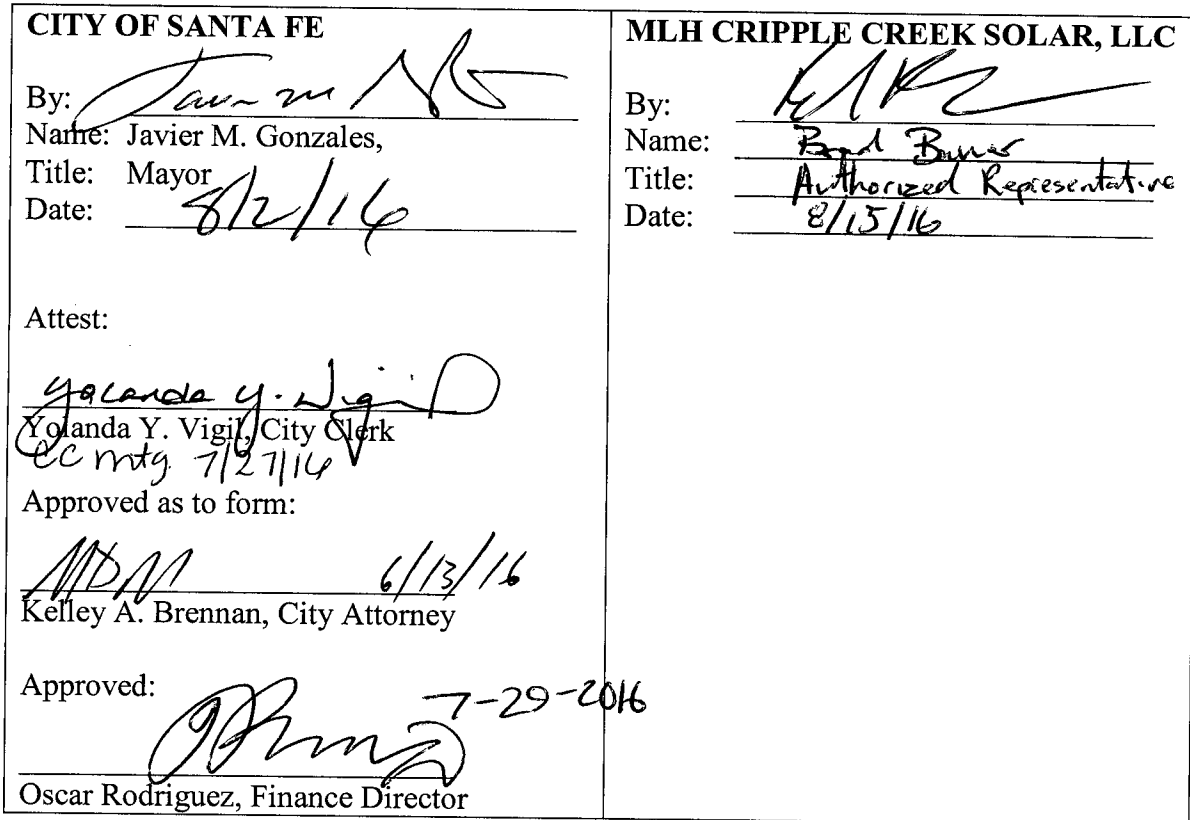 CITY OF SANTA FE
By:
Name: Javier M. Gonzales,
Title: Mayor
Date: 8/2/16
Attest:
Yolanda Y. Vigil
Yolanda Y. Vigil, City Clerk
CC mtg. 7/27/16
Approved as to form:
6/13/16
Kelley A. Brennan, City Attorney
Approved:
7-29-2016
Oscar Rodriguez, Finance Director
MLH CRIPPLE CREEK SOLAR, LLC
By:
Name: Brad
Title: Authorized Representative
Date: 8/15/16